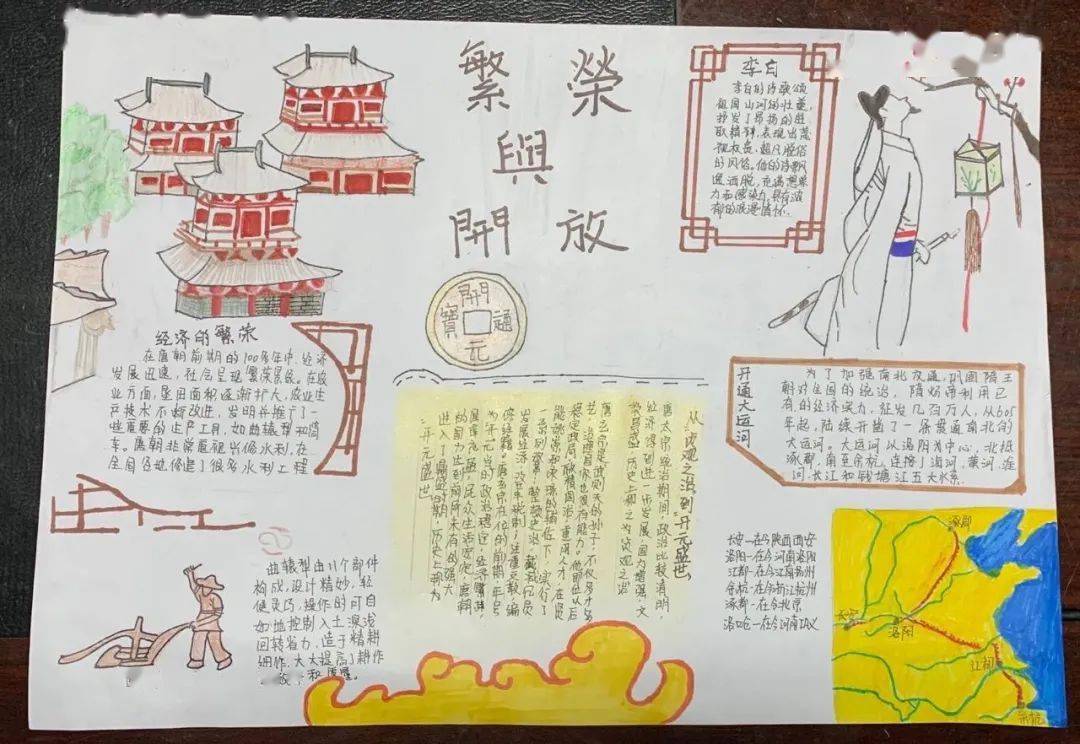 繁榮
與
開放
李白
李白的诗歌歌颂
祖国山河的壮丽,
抒发了昂扬的进
取精神,表现出蔑
视权贵、超凡脱俗
的风俗。他的诗飘
逸洒脱,充满想象
力和感染力,具有浓
郁的浪漫情怀。
開
通
元
寶
经济的繁荣
在唐朝前期的100多年中,经济
发展迅速,社会呈现繁荣景象。在农
业方面,垦田面积逐渐扩大,农业生
产技术不断改进,发明并推广了一
些重要的生产工具,如曲辕犁和筒
车。唐朝非常重视兴修水利,在
全国各地修建了很多水利工程
曲辕犁由11个部件
构成,设计精妙,轻
便灵巧,操作的可自
如地控制入土深浅
回转省力,适于精耕
细作,大大提高了耕作
和质量。
从“贞观之治”到开元盛世
唐太宗统治期间,政治比较清明,
经济得到进一步发展,国力增强,文
历史上称之为“贞观之治”
唐玄宗是武则天的孙子,不仅多才多
艺,
稳定政局,励精图治,重用人才,
一系列改革:整顿吏治,裁减冗员
发展经济,改革税制;注重文教,编
修经籍。唐玄宗在位的前期,年号
为“开元”,当时政治稳定,经济繁荣,
唐朝
的国力达到前所未有的强大
进入了鼎盛时期,历史上称为
“开元盛世”
开通大运河
为了加强南北交通,巩固隋王
朝对全国的统治,隋炀帝利用已
有的经济实力,征发几百万人,从605
年起,陆续开凿了一条贯通南北的
大运河。大运河以洛阳为中心,北抵
涿郡,南至余杭,连接了海河、黄河、淮
河、长江和钱塘江五大水系。
长安—在今陕西西安
洛阳—在今河南洛阳
江都—在今江苏扬州
余杭—在今浙江杭州
涿郡—在今北京
洛口仓—在今河南巩义
涿郡
长安
洛阳
江都
余杭